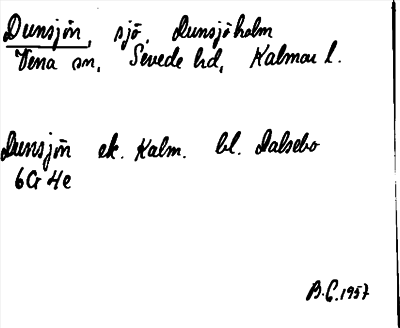 Dunsjön, sjö, Dunsjöholm
Vena sn, Sevede hd, Kalmar l.
Dunsjön ek. Kalm. bl. Dalsebo
6G 4e
B.G. 1957